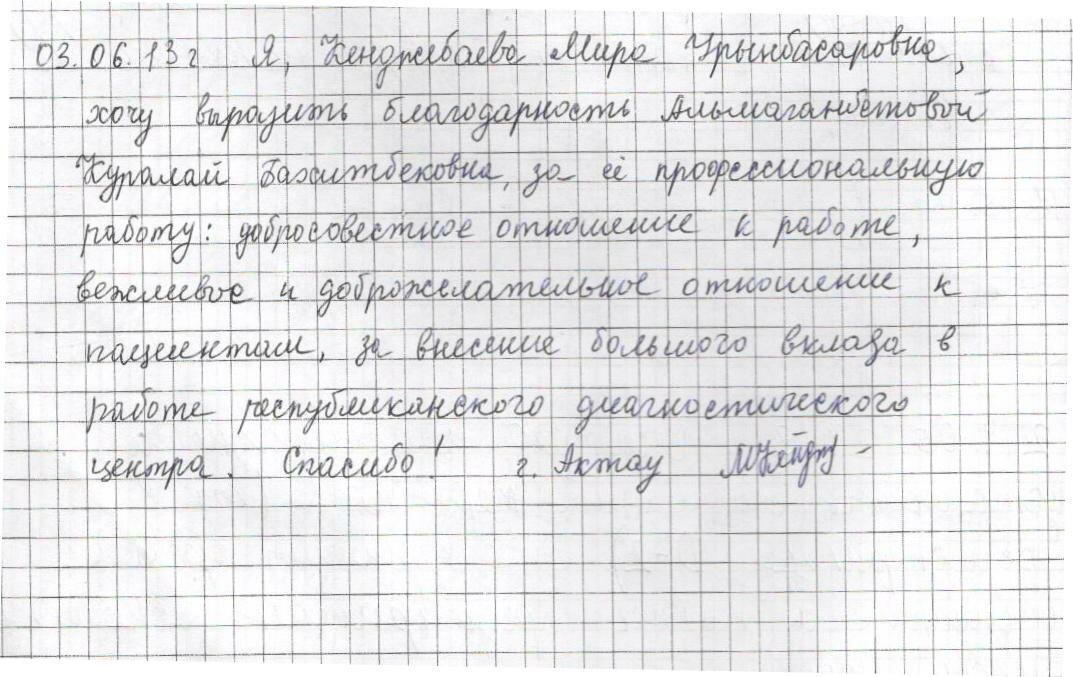 03.06.13г Я, Кенджебаева Мира Урынбасаровна,
хочу выразить благодарность Альмаганбетовой
Куралай Бахитбековна, за её профессиональную
работу: добросовестное отношение к работе,
вежливое и доброжелательное отношение к
пациентам, за внесение большого вклада в
работе республиканского диагностического
центра. Спасибо! г. Актау